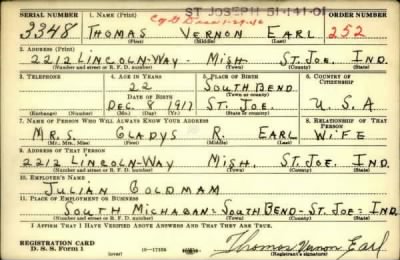 ST JOSEPH 51-141-01
SERIAL NUMBER 1. NAME (Print) ORDER NUMBER
3348 THOMAS VERNON EARL 252
(First) (Middle) (Last)
2. ADDRESS (Print)
2212 LINCOLN-WAY - MISH ST. JOE. IND.
(Number and street or R. F. D. number) (Town) (County) (State)
3. TELEPHONE 4. AGE IN YEARS 5. PLACE OF BIRTH 6. COUNTRY OF CITIZENSHIP
22 SOUTH BEND
(Town or county)
DATE OF BIRTH
DEC. 8 1917 ST. JOE. U.S.A
(Exchange) (Number) (Mo.) (Day) (Yr.) (State or country)
7. NAME OF PERSON WHO WILL ALWAYS KNOW YOUR ADDRESS 8. RELATIONSHIP OF THAT PERSON
MRS. GLADYS R. EARL WIFE
(Mr., Mrs., Miss) (First) (Middle) (Last)
9. ADDRESS OF THAT PERSON
2212 LINCOLN-WAY MISH. ST. JOE. IND.
(Number and street or R. F. D. number) (Town) (County) (State)
10. EMPLOYER'S NAME
JULIAN GOLDMAM
11. PLACE OF EMPLOYMENT OR BUSINESS
SOUTH MICHAGAN - SOUTH BEND - ST. JOE - IND.
(Number and street or R. F. D. number) (Town) (County) (State)
I AFFIRM THAT I HAVE VERIFIED ABOVE ANSWERS AND THAT THEY ARE TRUE.
REGISTRATION CARD
D. S. S. FORM 1 (over) Thomas Vernon Earl
(Registrant's signature)